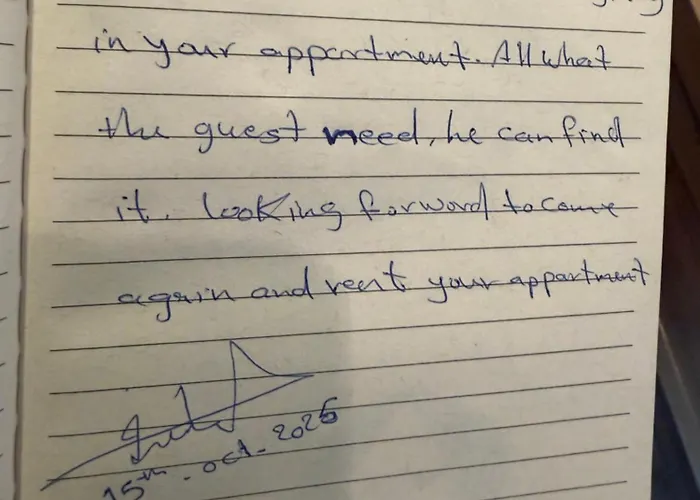 in your appartment. All what
the guest need, he can find
it. looking forward to come
again and rent your appartment
15th - oct - 2025